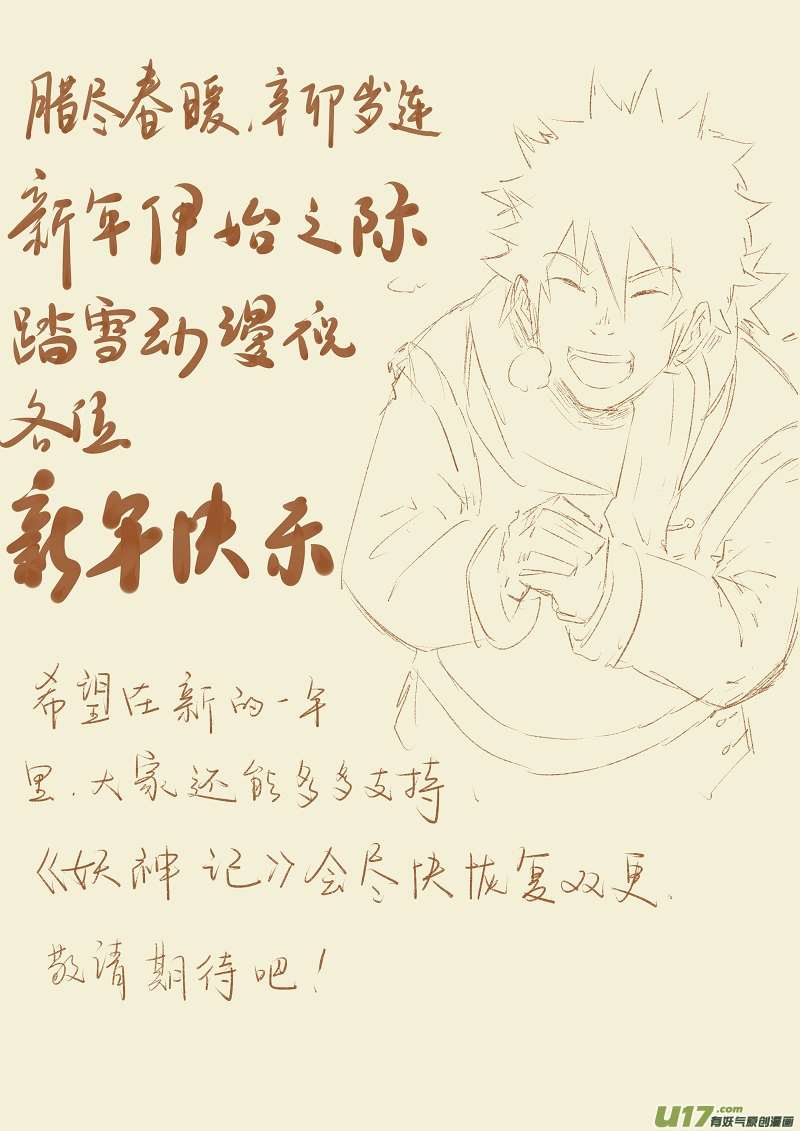 腊尽春暖,辛卯岁连
新年伊始之际
踏雪动漫祝
各位
新年快乐
希望在新的一年
里,大家还能多多支持、
《妖神记》会尽快恢复双更.
敬请期待吧!
U17.com
有妖气原创漫画